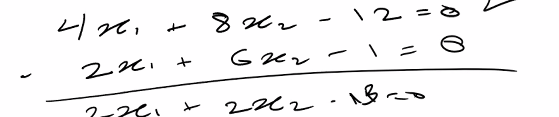 4x₁ + 8x₂ - 12 = 0
- 2x₁ + 6x₂ - 1 = 0
2x₁ + 2x₂ - = 0